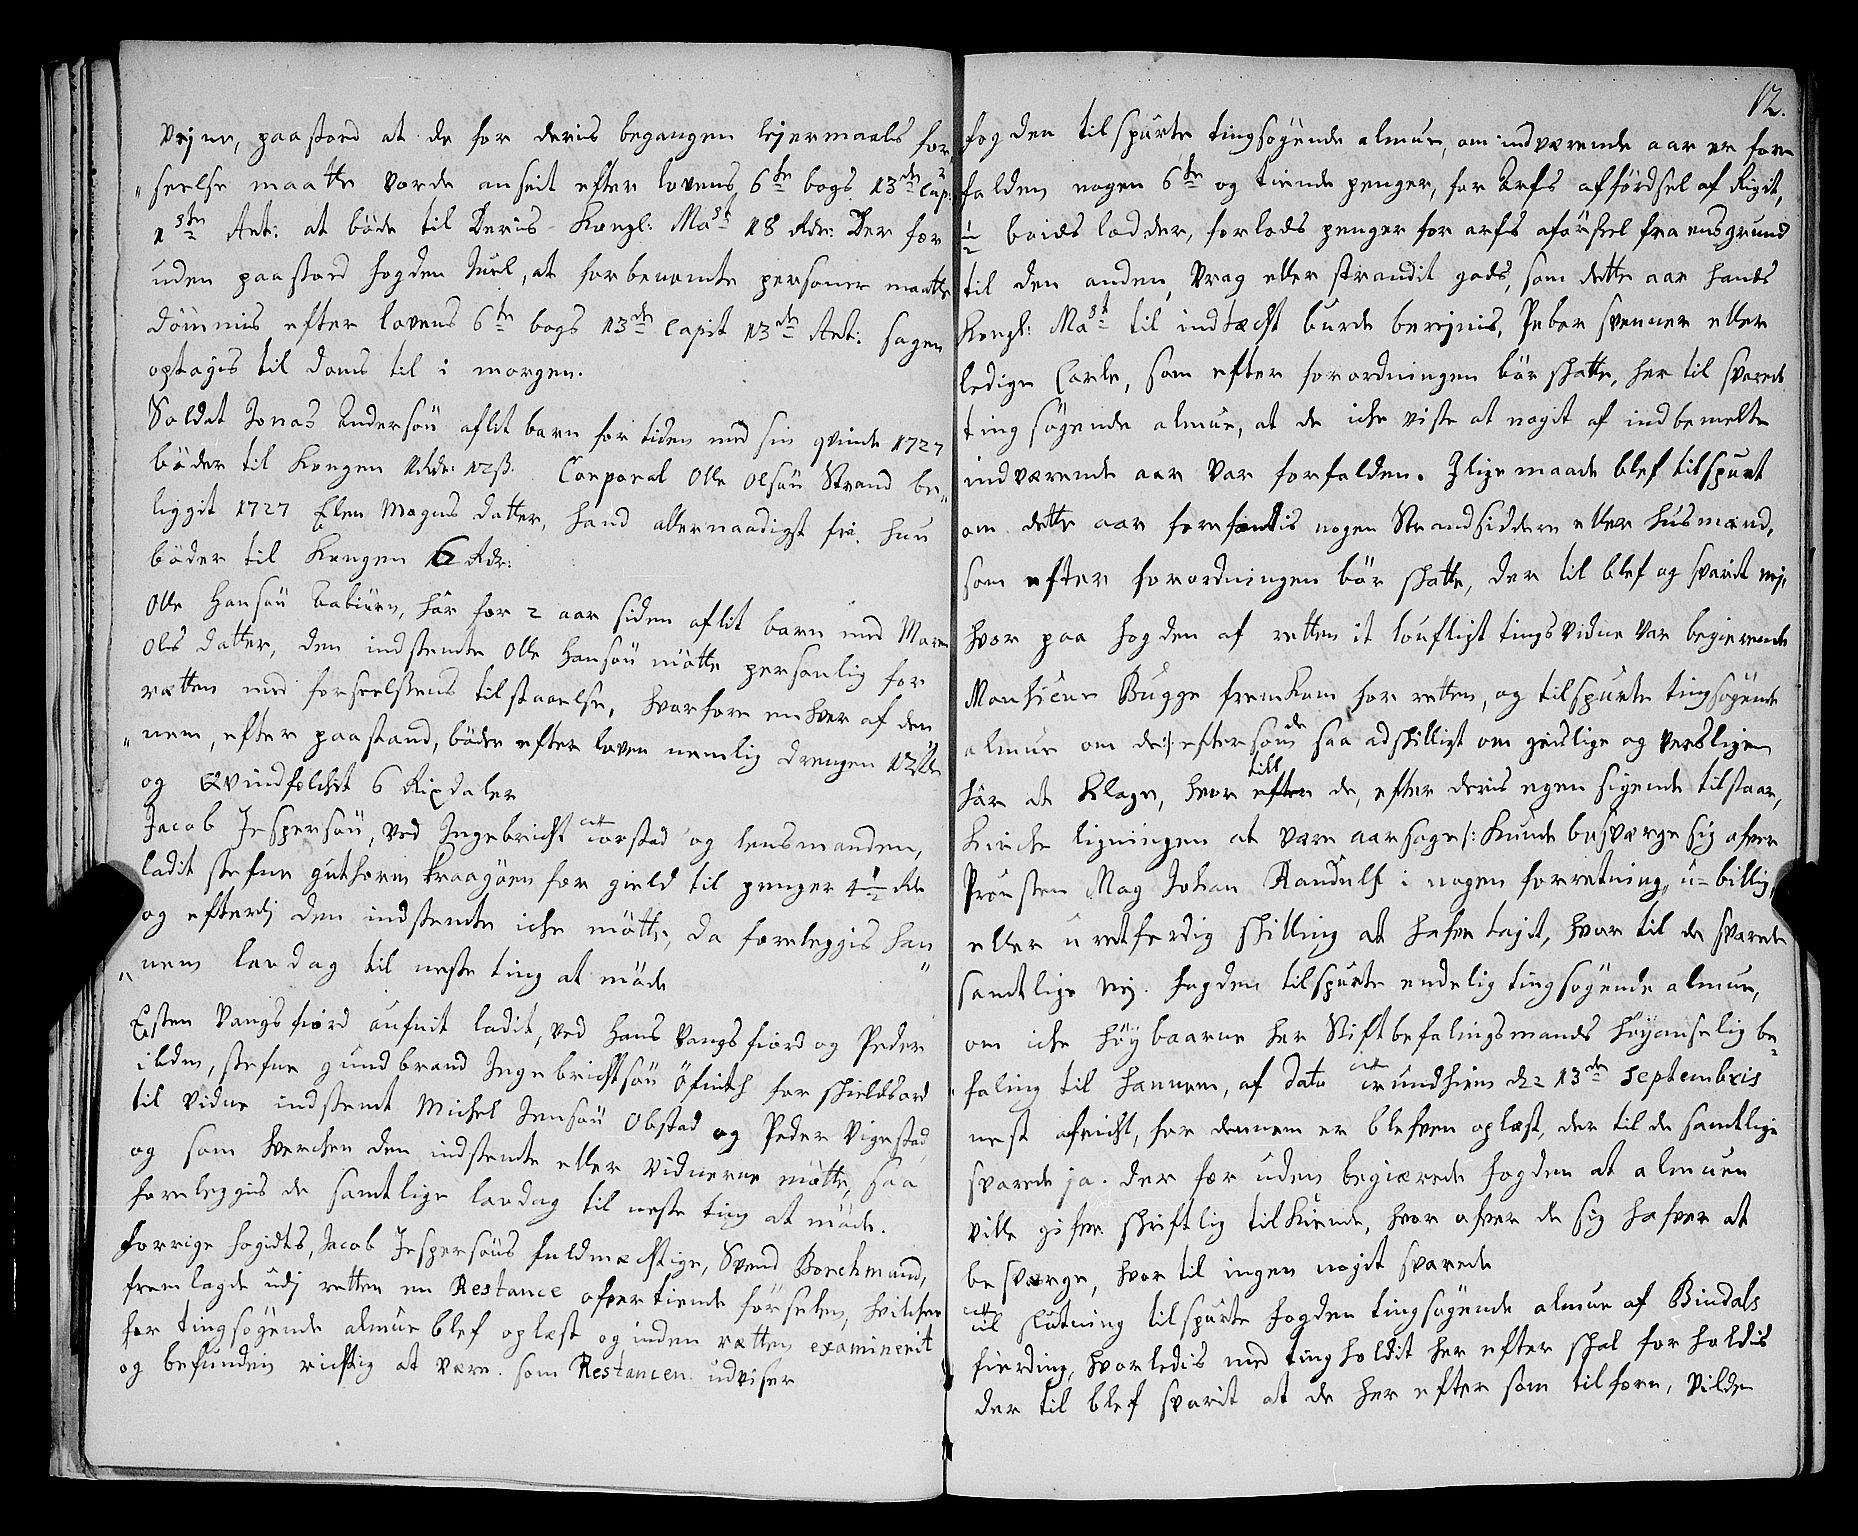 Vejne, paastoed at de for deris begangen lejermaals for„
„seelse maatte vorde anseit efter lovens 6te bogs 13de Cap:
1ste Art: at böde til Deris Kongl: Mast 18 Rdr: Der for
uden paastoed fogden Juel, at forbenemte personer maatte
dömmis efter lovens 6te bogs 13de Capit 13de Art: sagen
optagis til doms til i morgen.
Soldat Jonas Andersön aflit barn for tiden med sin qvinde 1727
böder til Kongen 1 Rdr: 12ß. Corporal Olle Olsön Strand be„
liggit 1727 Elen Mogens datter, hand allernaadigst fri, hun
böder til Kongen 6 Rdr:
Olle Hansön har for 2 aar siden aflit barn med Maren
Ols datter, den indstemte Olle Hansön mötte personlig for
rætten med forseelsens tilstaaelse, hvorfore en hver af den
„nem, efter paastand, böder efter loven nemlig drengen 12
og Qvindfolchit 6 Rixdaler
Jacob Jespersön, ved Ingebricht Torstad og lensmanden,
ladit stefne guthorm Kraagöen for gield til penger
og efterdj den indstemte iche mötte, da foreleggis han„
„nem lavdag til neste ting at möde
Esten Vangsfiord ladit, ved Hans Vangsfiord og Peder
ilden, stefne gundbrand Ingebrichtsön for skieldsord
til vidne indstemt Michel Jensön Obstad og Peder Vigestad,
og som hverchen den indstemte eller vidnerne mötte, saa
foreleggis de samtlige lavdag til neste ting at möde.
Forrige fogidts, Jacob Jespersöns fuldmæchtige, Svend Borchmand,
fremlagde udj retten en Restance ofver tiende förselen, hvilchen
for tingsögende almue blef oplæst og inden rætten examinerit
og befunden richtig at være. som Restancen udviser
12.
fogden tilspurte tingsögende almue, om indværende aar er for
falden nogen 6te og tiende penger, for Arfs afförsel af Rigit,
1/2 boids lodder, forlods penger for arfs aförsel fra ens grund
til den anden, Vrag eller strandit gods, som dette aar hands
Kongl: Mast til indtæcht burde berejnis, Peber svenner eller
ledige Carle, som efter forordningen bör skatte, her til svarede
ting sögende almue, at de iche viste at nogit af indbemelte
indværende aar var forfalden. Jlige maade blef tilspurt
om dette aar forefandtis nogen Strandsiddere eller husmænd,
som efter forordningen bör skatte, der til blef og svarit nej,
hvor paa fogden af retten it loufligt tings vidne var begierende
Monsieur Bugge fremkom for retten, og tilspurte tingsögende
almue om de /: eftersom de saa adskilligt om geislige og verslige
har at klage, hvor till de, efter deris egen sigende tilstaar,
Kirche ligningen at være aarsage :/ kunde besværge sig ofver
Prousten Mag Johan Randulf i nogen forretning, u-billig„
eller uretferdig skilling at hafve tagit, hvor til de svarede
samtlige nej. fogden tilspurte endelig tingsögende almue,
om iche höybaarne her Stiftbefalingsmands höyanselig be„
faling til hannem, af dato Trundhiem d: 13de Septembris
nest afvicht, for dennem er blefven oplæst, der til de samtlige
svarede ja. der for uden begiærede fogden at almuen
ville gifve skriftlig tilkiende, hvor ofver de sig hafver at
besværge, hvor til ingen nogit svarede
til slutning tilspurte fogden tingsögende almue af Bindals
fierding, hvorledis med tingholdit her efter skal forholdis
der til blef svarit at de her efter som tilforn, vilde